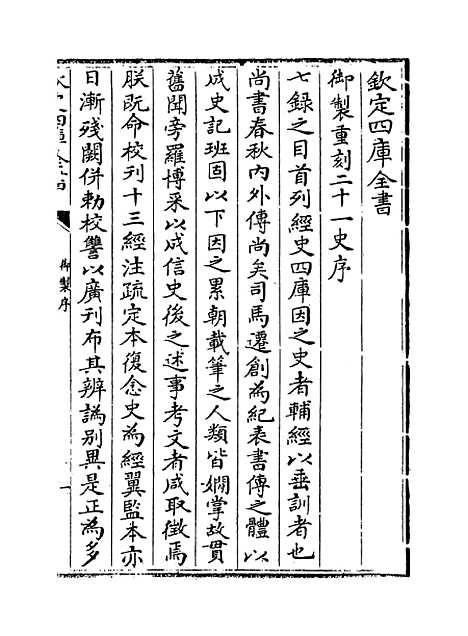 欽定四庫全書
御製重刻二十一史序
七錄之目首列經史四庫因之史者輔經以垂訓者也
尚書春秋內外傳尚矣司馬遷創為紀表書傳之體以
成史記班固以下因之累朝載筆之人類皆嫺掌故貫
舊聞旁羅博采以成信史後之述事考文者咸取徵焉
朕既命校刊十三經注疏定本復念史為經翼監本亦
日漸殘闕併勅校讐以廣刊布其辨譌别異是正為多
御製序
一